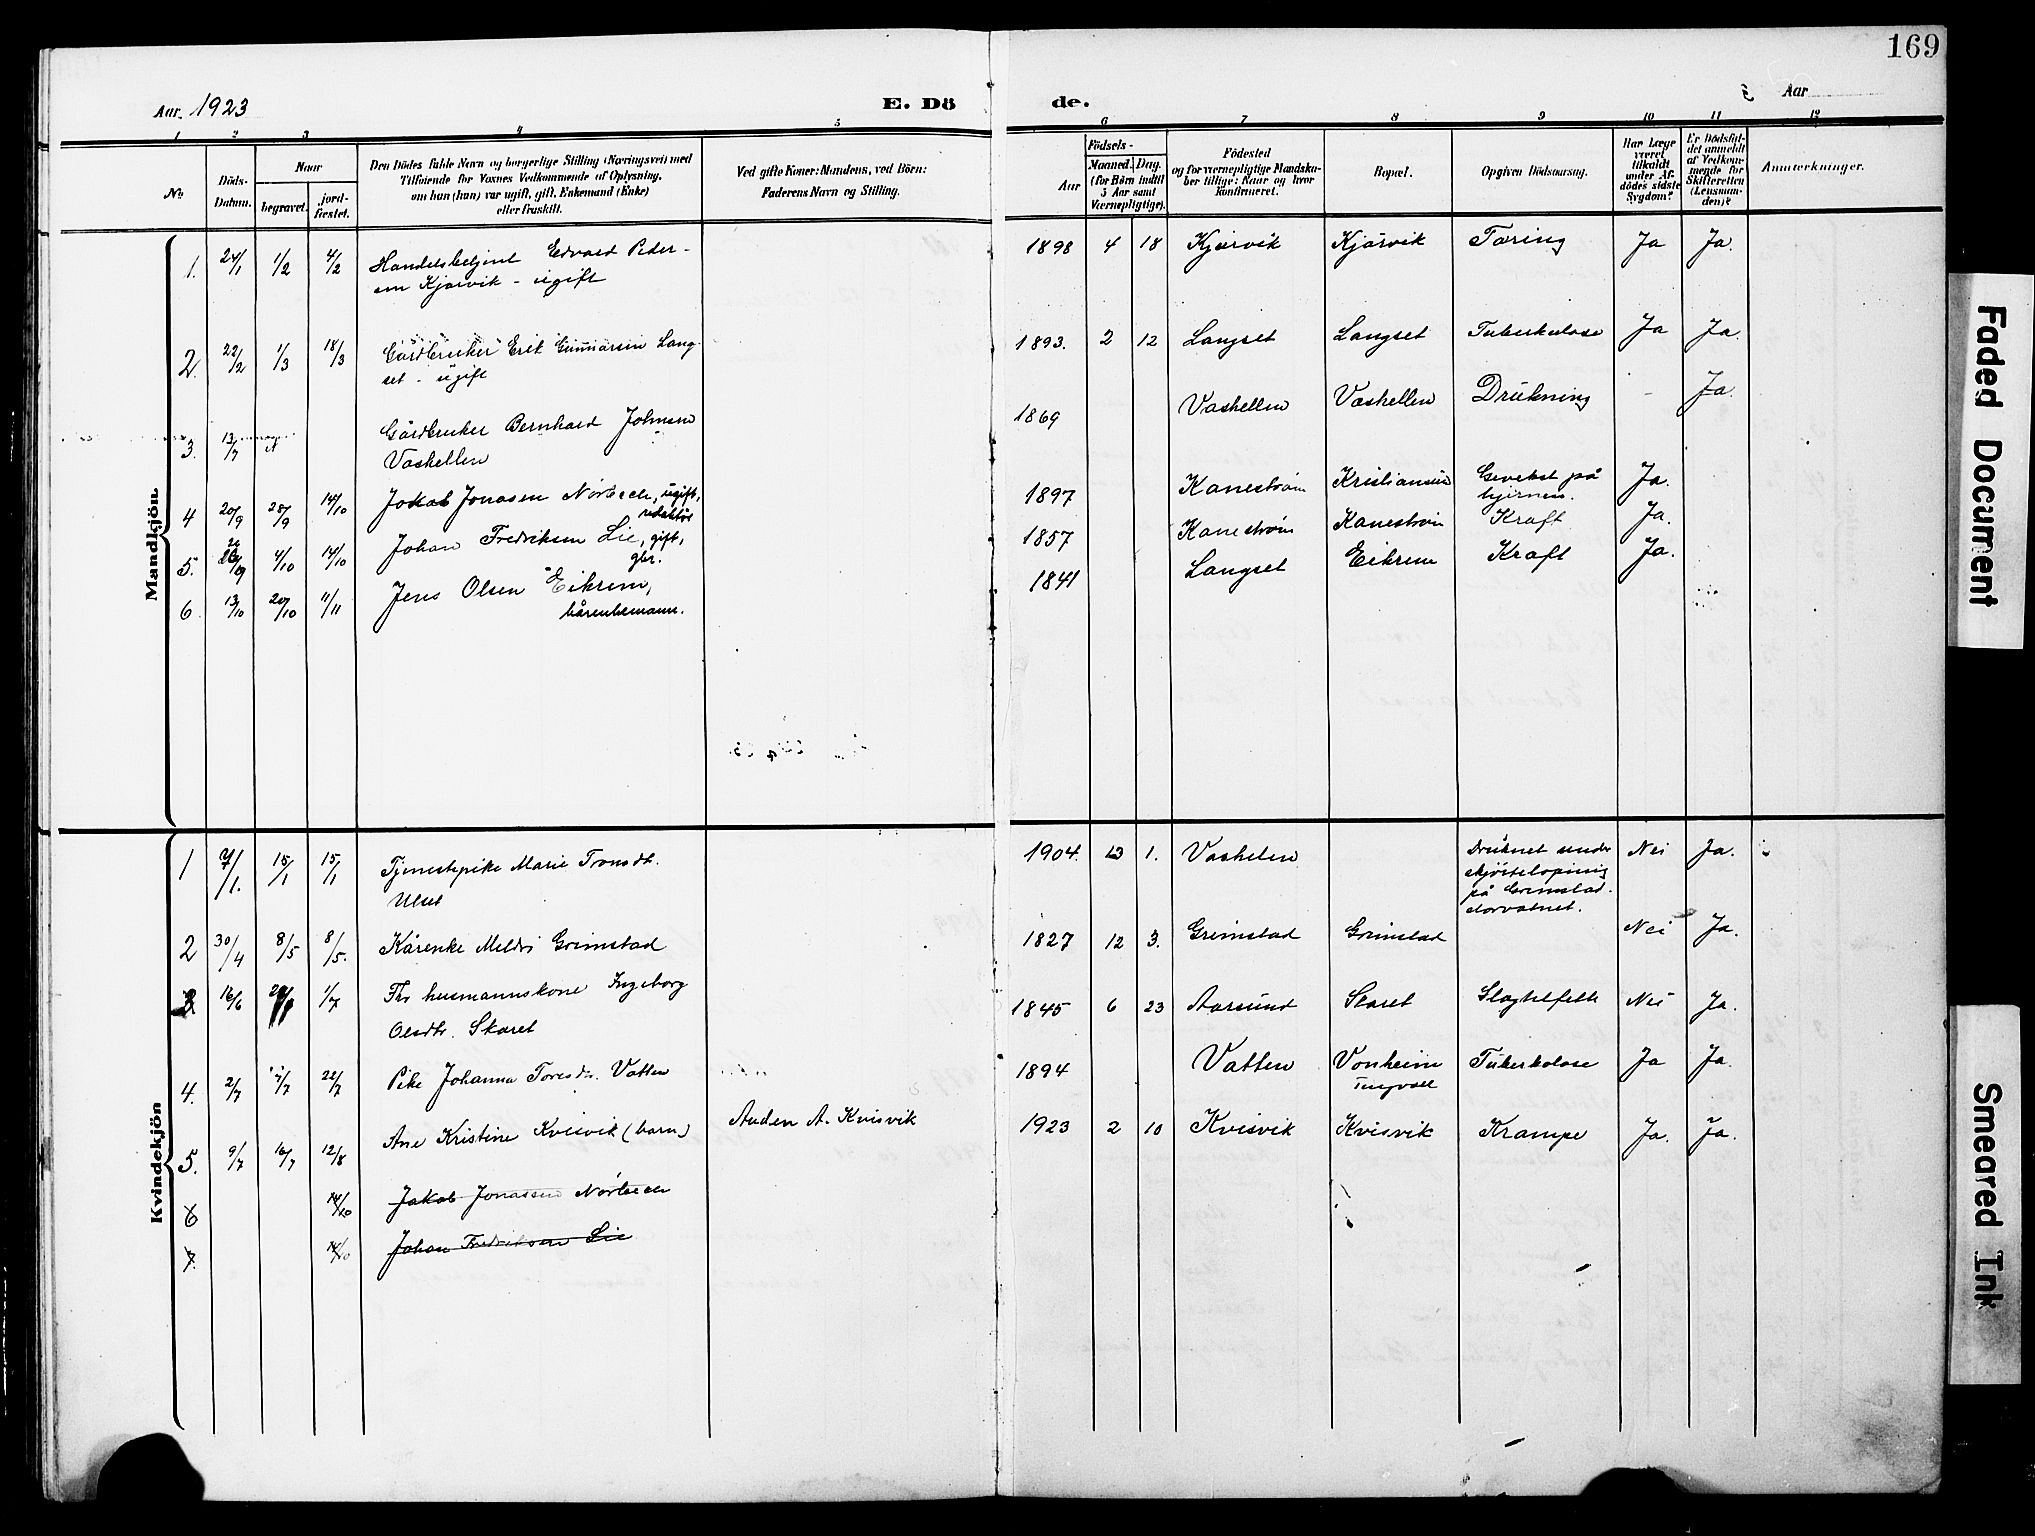 169
Aar 1923 E. Dö de. Aar
1 2 3 4 5 6 7 8 9 10 11 12
No
Döds-Datum.
Naar
begravet.
jord-fæstet.
Den Dödes fulde Navn og borgerlige Stilling (Næringsvei) med
Tilföiende for Voxnes Vedkommende af Oplysning,
om han (hun) var ugift, gift, Enkemand (Enke)
eller fraskilt.
Ved gifte Koner: Mandens, ved Börn:
Faderens Navn og Stilling.
Födsels-
Aar
Maaned. Dag.
(for Börn indtil
5 Aar samt
Værnepligtige).
Födested
og for værnepligtige Mandska-
ber tillige: Naar og hvor
konfirmeret.
Bopæl.
Opgiven Dödsaarsag.
Har Læge
været
tilkaldt
under Af-
dödes sidste
Sygdom?
Er Dödsfal-
det anmeldt
af Vedkom-
mende for
Skifteretten
(Lensman-
den)?
Anmærkninger.
Mandkjön.
1. 24/1 1/2 4/2 Handelsbetjent Edvard Peder- 1898 4 18 Kjørvik Kjørvik Tæring Ja Ja.
sen Kjørvik - ugift
2. 22/2 1/3 18/3 Gårdbruker Erik Gunnarsen Lang- 1893. 2 12 Langset Langset Tuberkulose Ja Ja.
set - ugift
3. 13/7 Gårdbruker Bernhard Johnsen 1869 Vashellen Vashellen Drukning - Ja.
Vashellen
4 20/9 28/9 14/10 Jakob Jonasen Norbech, ugift, 1897 Kanestrøm Kristiansun Gevekst på Ja.
redaktør hjernen.
5. 26/9 4/10 14/10 Johan Fredriksen Lie, gift, 1857 Kanestrøm Kanestrøm Kraft Ja.
gbr.
6. 13/10 20/10 11/11 Jens Olsen Eikrem, 1841 Langset Eikrem Kraft Ja.
kårenkemann.
Kvindekjön
1 7/1. 15/1 15/1 Tjenestepike Marie Tronsdt. 1904. 12 1. Vashelen Druknet under Nei Ja.
Ulset skjøiteløpning
på Grimstad-
dorvatnet.
2 30/4 8/5 8/5. Kårenke Meldri Grimstad 1827 12 3. Grimstad Grimstad Nei Ja.
3 16/6 1/7 Fhv husmannskone Ingeborg 1845 6 23 Aarsund Skaret Slagtilfelle Nei Ja.
Olsdtr. Skaret
4. 2/7 7/7 22/7 Pike Johanna Toresdtr. Vatten 1894 Vatten Vonheim Tuberkolose Ja Ja.
Tingvoll
5. 9/7 16/7 12/8 Ane Kristine Kvisvik (barn) Anden A. Kvisvik 1923 2 10 Kvisvik Kvisvik Krampe Ja. Ja.
6 14/10 Jakob Jonassen Norbech
7. 14/10 Johan Fredriksen Lie
Faded Document
Smeared Ink